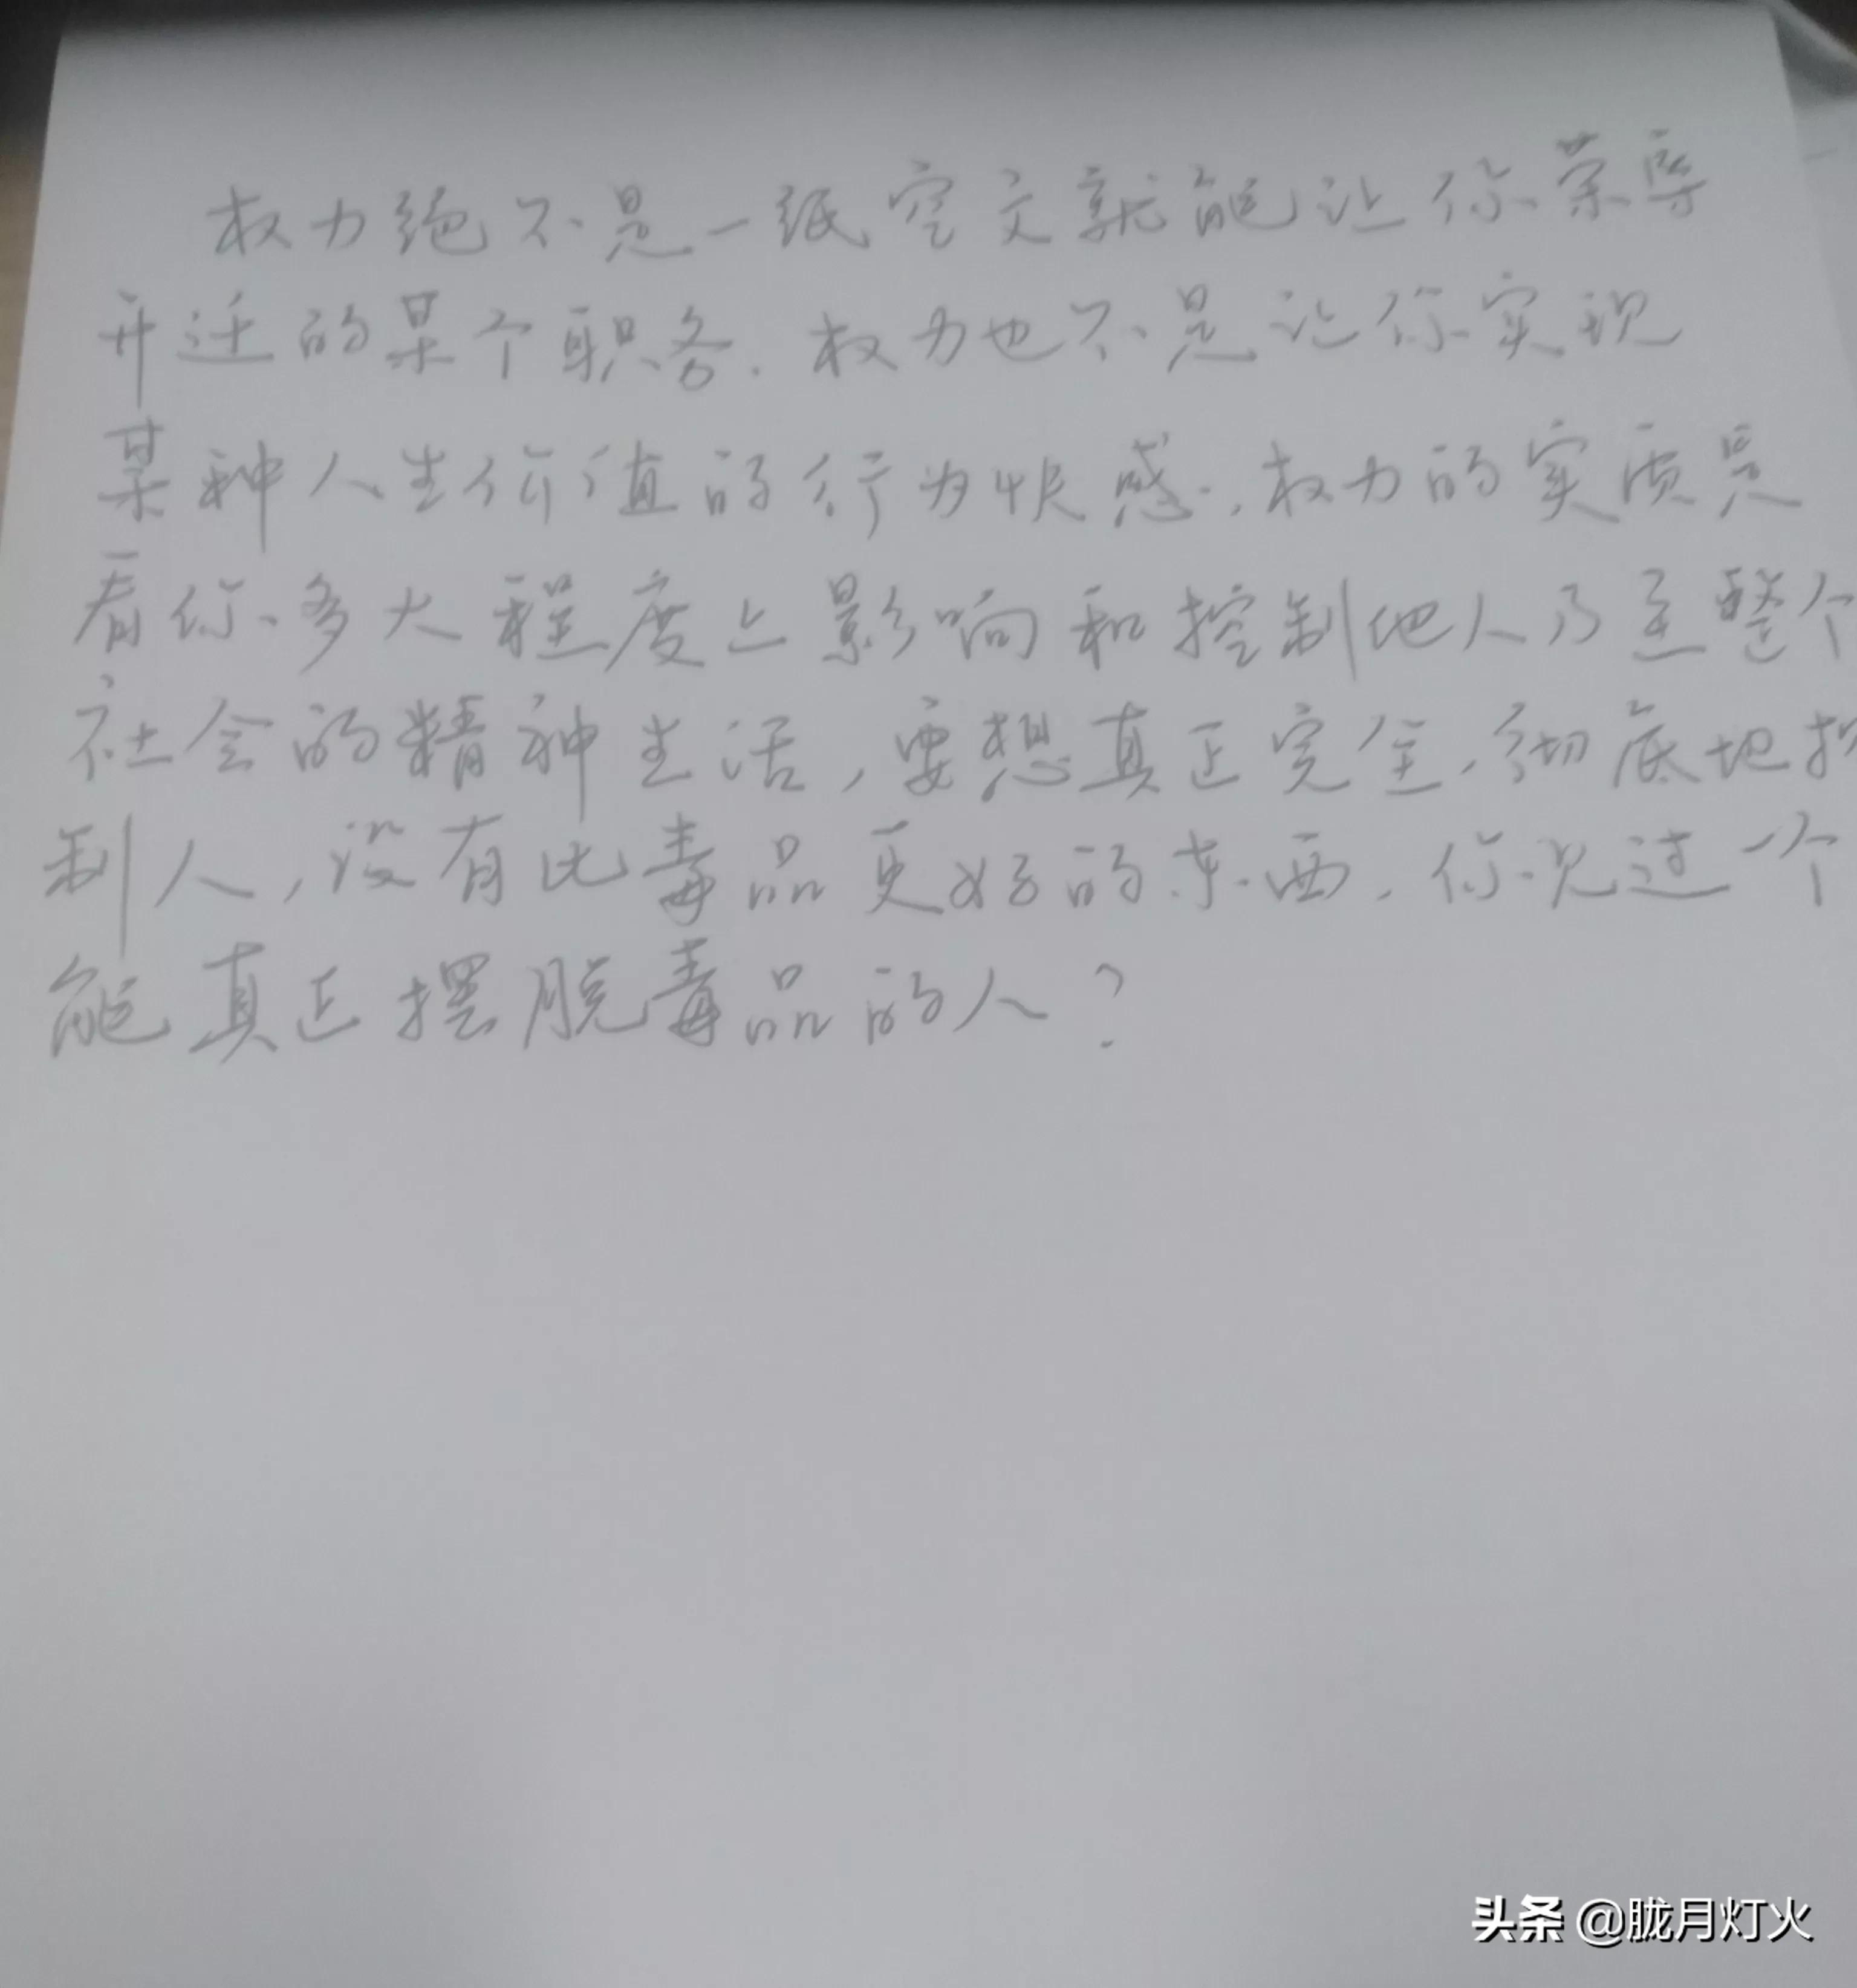 权力绝不是一纸空文就能让你荣辱
升迁的某个职务.权力也不是让你实现
某种人生价值的行为快感.,权力的实质是
看你多大程度上影响和控制他人乃至整个
社会的精神生活,要想真正完全,彻底地控
制人,没有比毒品更好的东西.你见过一个
能真正摆脱毒品的人?
头条 @胧月灯火